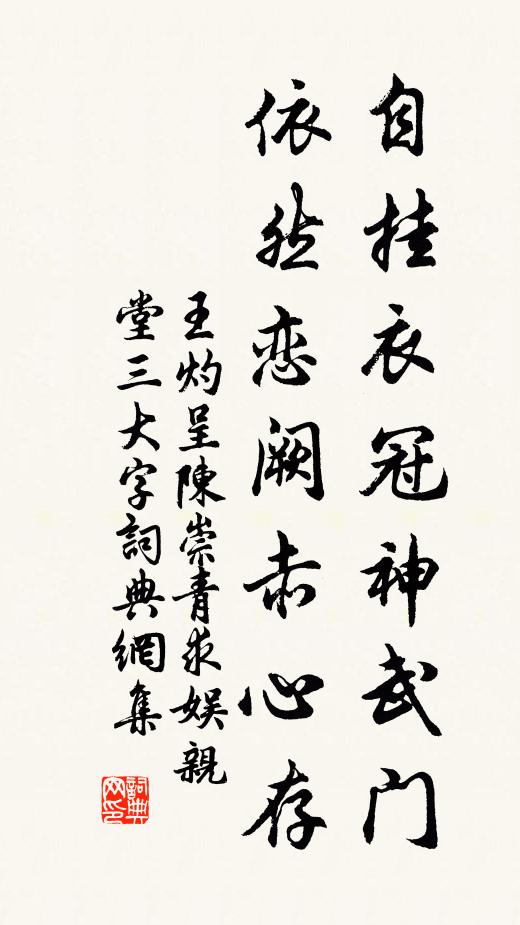 自挂衣冠神武门
依然恋阙赤心存
王灼呈陳崇青求娱親
堂三大字詞典網集
詞典
网印